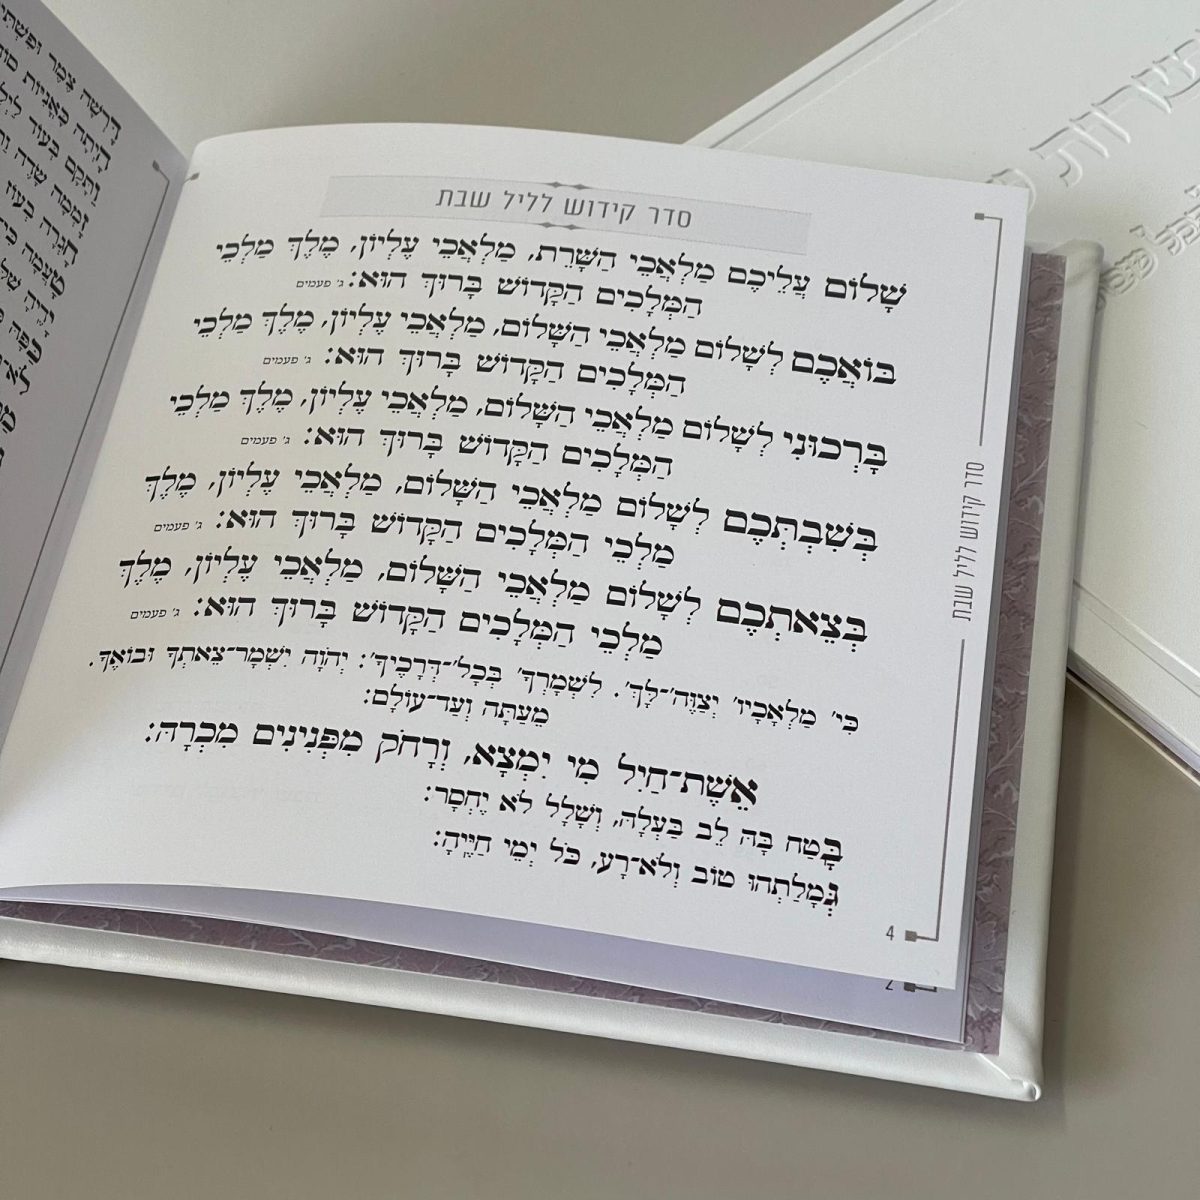 סדר קידוש לליל שבת
שָׁלוֹם עֲלֵיכֶם מַלְאֲכֵי הַשָּׁרֵת, מַלְאֲכֵי עֶלְיוֹן, מֶלֶךְ מַלְכֵי
הַמְּלָכִים הַקָּדוֹשׁ בָּרוּךְ הוּא: ג' פעמים
בּוֹאֲכֶם לְשָׁלוֹם מַלְאֲכֵי הַשָּׁלוֹם, מַלְאֲכֵי עֶלְיוֹן, מֶלֶךְ מַלְכֵי
הַמְּלָכִים הַקָּדוֹשׁ בָּרוּךְ הוּא: ג' פעמים
בָּרְכוּנִי לְשָׁלוֹם מַלְאֲכֵי הַשָּׁלוֹם, מַלְאֲכֵי עֶלְיוֹן, מֶלֶךְ מַלְכֵי
הַמְּלָכִים הַקָּדוֹשׁ בָּרוּךְ הוּא: ג' פעמים
בְּשִׁבְתְּכֶם לְשָׁלוֹם מַלְאֲכֵי הַשָּׁלוֹם, מַלְאֲכֵי עֶלְיוֹן, מֶלֶךְ
מַלְכֵי הַמְּלָכִים הַקָּדוֹשׁ בָּרוּךְ הוּא: ג' פעמים
בְּצֵאתְכֶם לְשָׁלוֹם מַלְאֲכֵי הַשָּׁלוֹם, מַלְאֲכֵי עֶלְיוֹן, מֶלֶךְ
מַלְכֵי הַמְּלָכִים הַקָּדוֹשׁ בָּרוּךְ הוּא: ג' פעמים
כִּי' מַלְאָכָיו' יְצַוֶּה'־לָּךְ'. לִשְׁמָרְךָ' בְּכָל'־דְּרָכֶיךָ': יְהֹוָה יִשְׁמָר־צֵאתְךָ וּבוֹאֶךָ.
מֵעַתָּה וְעַד־עוֹלָם:
אֵשֶׁת־חַיִל מִי יִמְצָא, וְרָחֹק מִפְּנִינִים מִכְרָהּ:
בָּטַח בָּהּ לֵב בַּעְלָהּ, וְשָׁלָל לֹא יֶחְסָר:
גְּמָלַתְהוּ טוֹב וְלֹא־רָע, כֹּל יְמֵי חַיֶּיהָ:
סדר קידוש לליל שבת
4
2
דָּרְשָׁה צֶמֶר וּפִשְׁתִּים
הָיְתָה כָּאֳנִיּוֹת
וַתָּקָם בְּעוֹד
זָמְמָה שָׂדֶה
חָגְרָה בְעוֹז
טָעֲמָה
יָדֶיהָ
כַּפָּהּ